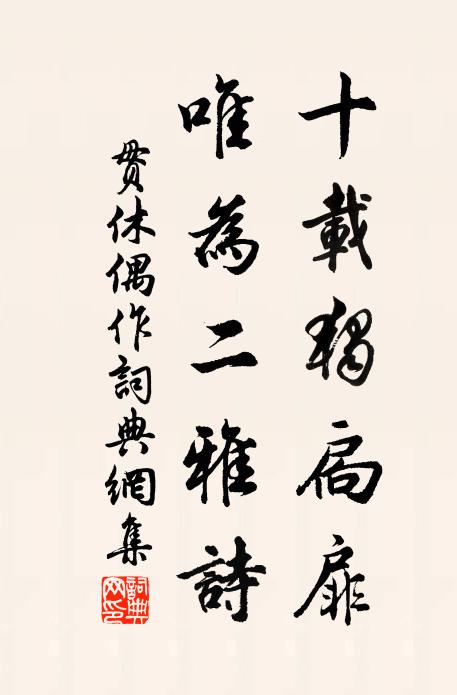 十載獨扃扉
唯為二雅詩
貫休偶作詞典網集
詞典网印